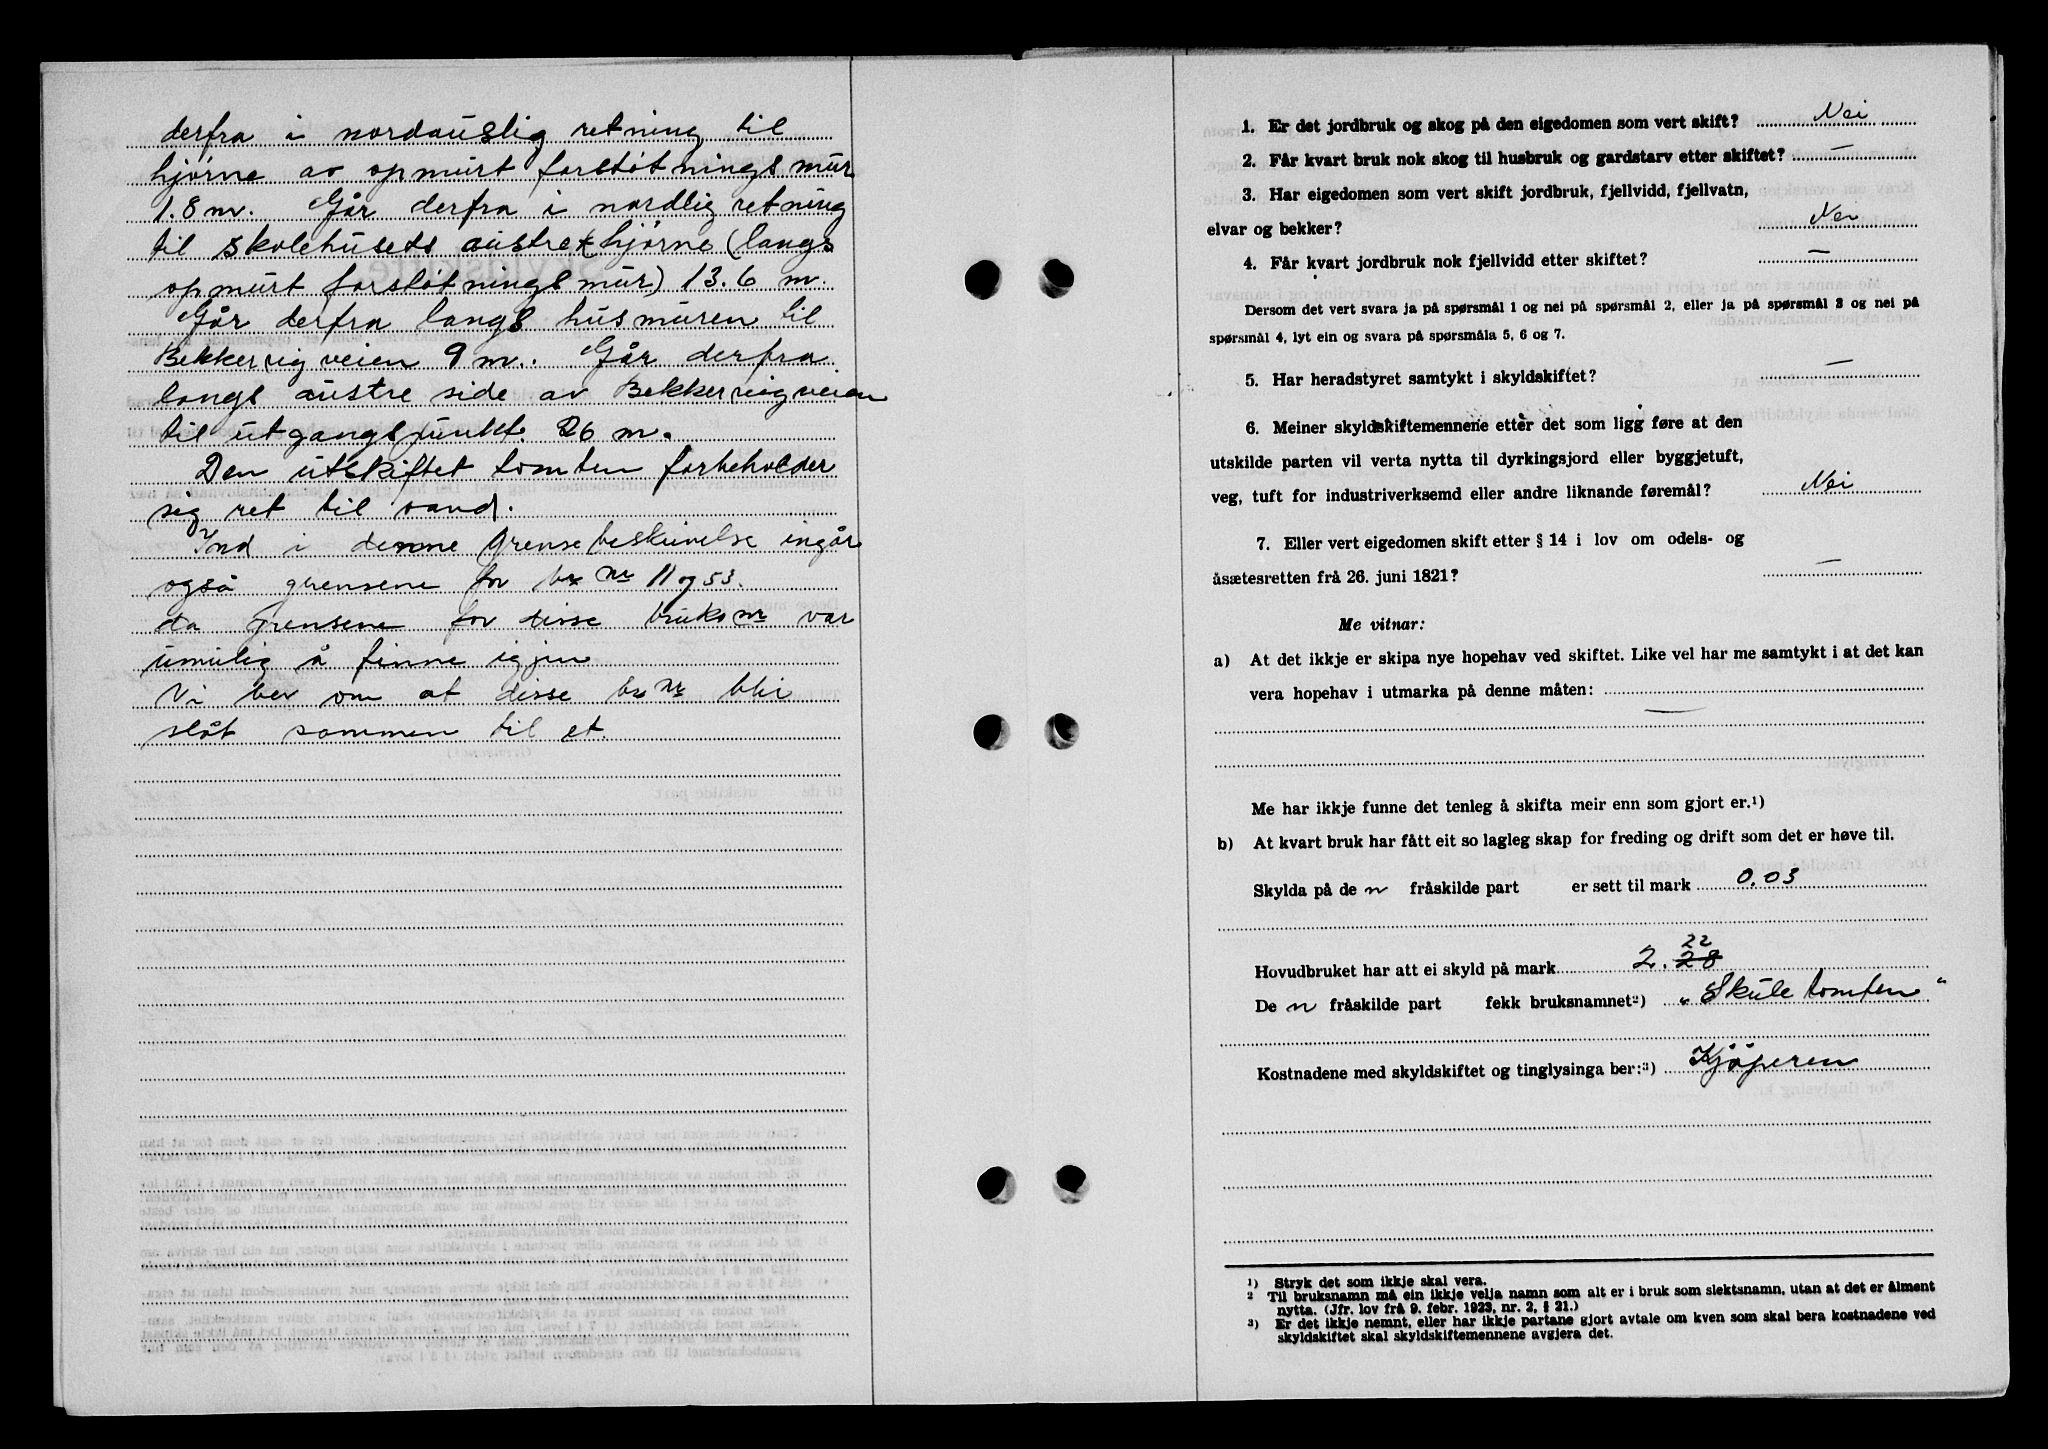 derfra i nordauslig retning til
hjørne av opmurt forstøtnings mur
1.8 m. Går derfra i nordlig retning
til skolehusets austre hjørne (langs
opmurt forstøtningsmur) 13.6 m.
Går derfra langs husmuren til
Bekkervigveien 9 m. Går derfra
langs austre side av Bekkervigveien
til utgangspunkt. 26 m.
Den utskiftet tomten forbeholder
sig ret til vand.
Ind i denne Grensebeskrivelse ingår
også grensene for br nr 11 og 53.
da grensene for disse bruks nr var
umulig å finne igjen
Vi ber om at disse br nr blir
slåt sammen til et.
1. Er det jordbruk og skog på den eigedomen som vert skift? Nei
2. Får kvart bruk nok skog til husbruk og gardstarv etter skiftet? —
3. Har eigedomen som vert skift jordbruk, fjellvidd, fjellvatn,
elvar og bekker? Nei
4. Får kvart jordbruk nok fjellvidd etter skiftet? —
Dersom det vert svara ja på spørsmål 1 og nei på spørsmål 2, eller ja på spørsmål 3 og nei på
spørsmål 4, lyt ein og svara på spørsmåla 5, 6 og 7.
5. Har heradstyret samtykt i skyldskiftet? —
6. Meiner skyldskiftemennene etter det som ligg føre at den
utskilde parten vil verta nytta til dyrkingsjord eller byggjetuft,
veg, tuft for industriverksemd eller andre liknande føremål? Nei
7. Eller vert eigedomen skift etter § 14 i lov om odels- og
åsætesretten frå 26. juni 1821? —
Me vitnar:
a) At det ikkje er skipa nye hopehav ved skiftet. Like vel har me samtykt i at det kan
vera hopehav i utmarka på denne måten: —
Me har ikkje funne det tenleg å skifta meir enn som gjort er.¹)
b) At kvart bruk har fått eit so lagleg skap for freding og drift som det er høve til.
Skylda på de n fråskilde part er sett til mark 0.03
22
Hovudbruket har att ei skyld på mark 2.28
De n fråskilde part fekk bruksnamnet²) "Skule tomten"
Kostnadene med skyldskiftet og tinglysinga ber:³) Kjøperen
¹) Stryk det som ikkje skal vera.
² Til bruksnamn må ein ikkje velja namn som alt er i bruk som slektsnamn, utan at det er ålment
nytta. (Jfr. lov frå 9. febr. 1923, nr. 2, § 21.)
³) Er det ikkje nemnt, eller har ikkje partane gjort avtale om kven som skal bera kostnadene ved
skyldskiftet skal skyldskiftemennene avgjera det.